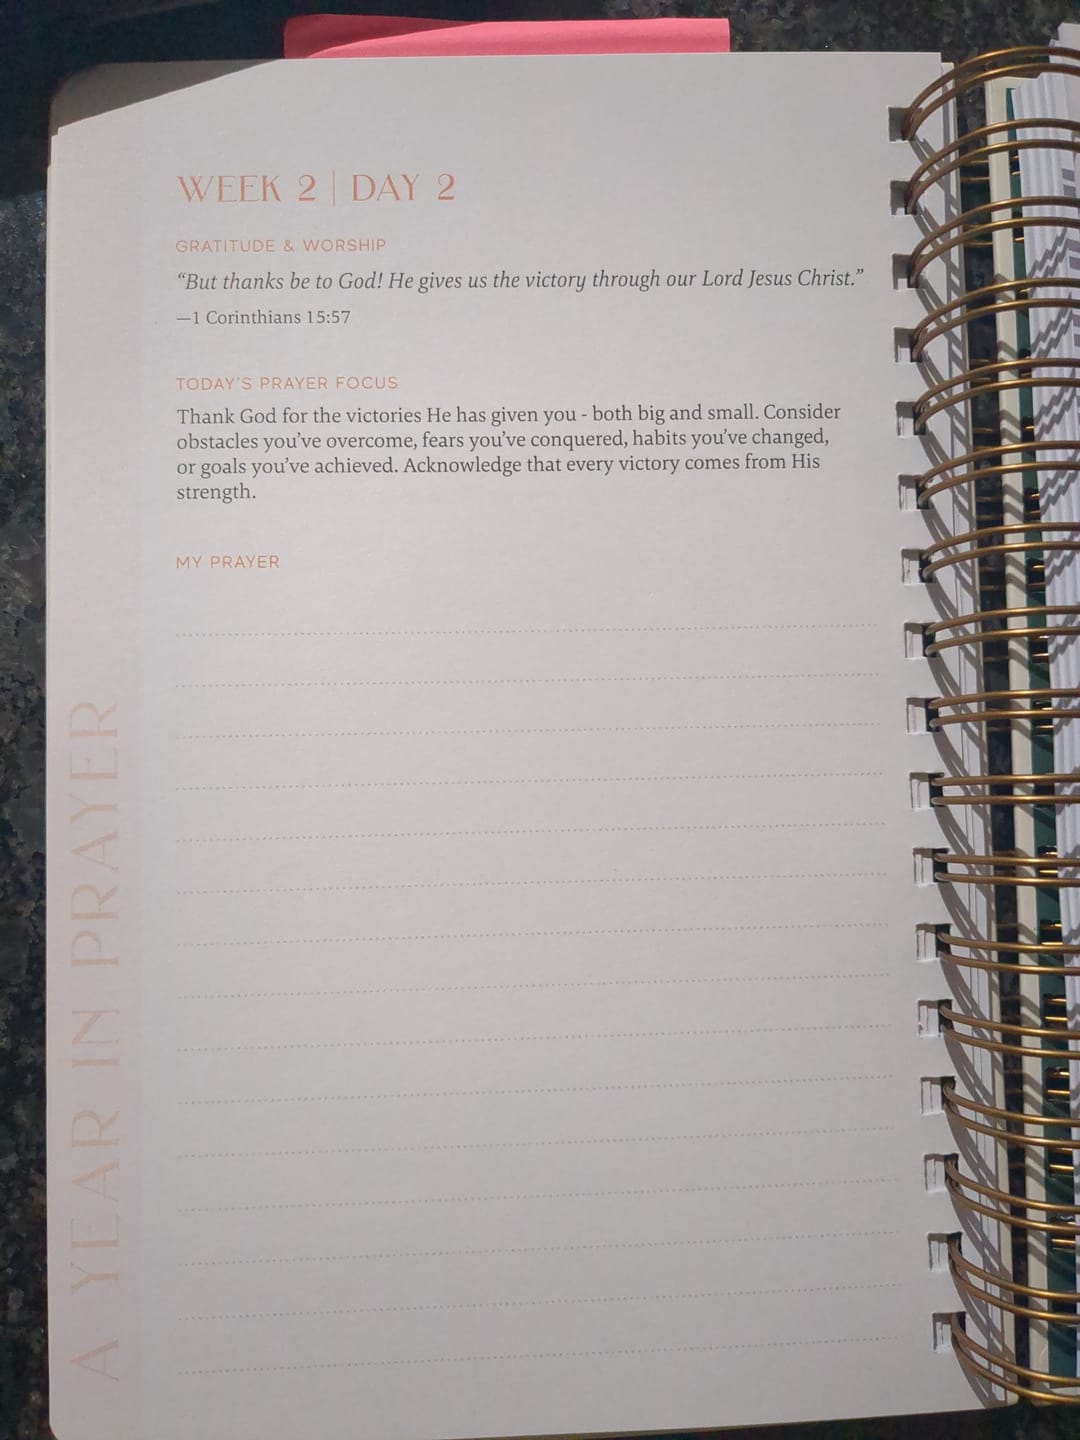 WEEK 2 | DAY 2
GRATITUDE & WORSHIP
“But thanks be to God! He gives us the victory through our Lord Jesus Christ.”
—1 Corinthians 15:57
TODAY’S PRAYER FOCUS
Thank God for the victories He has given you - both big and small. Consider
obstacles you’ve overcome, fears you’ve conquered, habits you’ve changed,
or goals you’ve achieved. Acknowledge that every victory comes from His
strength.
MY PRAYER
A YEAR IN PRAYER